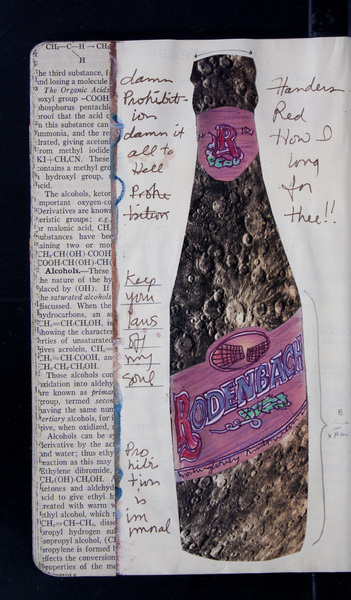 he third substance, f
nd losing a molecule
The Organic Acids
oxyl group –COOH
phosphorus pentachl
proof that the acid c
n this substance can
mmonia, and the re
drated, giving aceton
rom methyl iodide
KI+CH₃CN. These
contains a methyl gr
hydroxyl group, s
cid.
The alcohols, keton
mportant oxygen-co
Derivatives are know
eristic groups; e.g.,
or malonic acid, CH
substances have bee
aining two or mo
Alcohols.—These
the nature of the hy
laced by (OH). If
the saturated alcohols
discussed. When the
hydrocarbons, an a
CH₂=CH·CH₂OH, is
showing the characte
erties of unsaturated
ives acrolein, CH₂=
CH₂=CH–COOH, and
CH₃·CH₂·CH₂OH.
Those alcohols con
oxidation into aldehy
are known as primar
group, termed secon
having the same num
tertiary alcohols, for i
tive, when oxidized,
Alcohols can be sy
derivative by the act
and water; thus ethy
reaction as this may
Ethylene dibromide,
ketones and aldehyd
acid to give ethyl h
treated with warm w
thyl alcohol, which
CH₃=CH–CH₃, disso
propyl hydrogen sul
sopropyl alcohol, (CH
propylene is formed
ffects the conversion
roperties of the me
damn
Prohibit-
ion
damn it
all to
Hell
Prohi
bition
Keep
your
laws
off
my
soul
Pro
hibi
tion
is
im
moral
R
RODENBACH
Flanders
Red
How I
long
for
thee!!